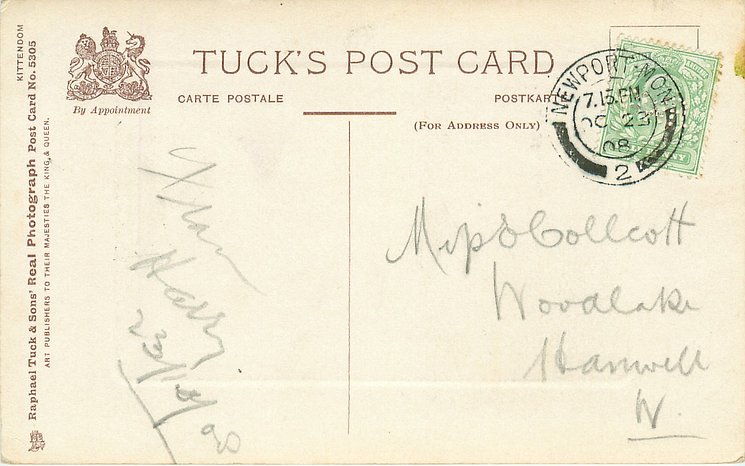 KITTENDOM
Raphael Tuck & Sons' Real Photograph Post Card No. 5305
ART PUBLISHERS TO THEIR MAJESTIES THE KING, & QUEEN.
By Appointment
TUCK'S POST CARD
CARTE POSTALE
POSTKART
(FOR ADDRESS ONLY)
NEWPORT-MON
7.15.PM
OC 23
08
2
From
Harry
23/10/08
Miss Collcott
Woodlake
Hanwell
W.